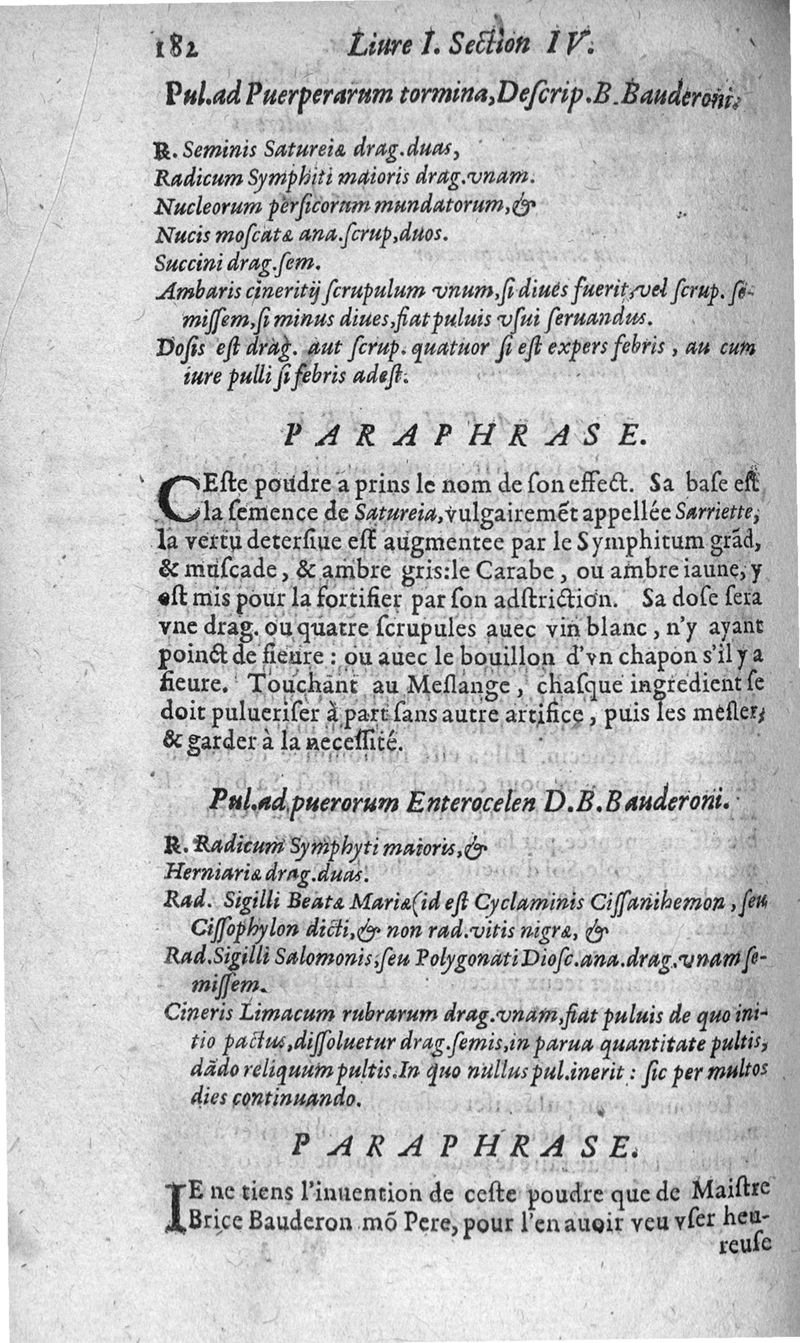 182 Liure I. Section IV.
Pul.ad Puerperarum tormina,Deſcrip.B.Bauderoni.
R. Seminis Satureiæ drag.duas,
Radicum Symphiti maioris drag.vnam.
Nucleorum perſicorum mundatorum,&
Nucis moſcatæ ana.ſcrup,duos.
Succini drag.ſem.
Ambaris cineritij ſcrupulum vnum,ſi diues fuerit,vel ſcrup. ſe-
miſſem,ſi minus diues,fiat puluis vſui ſeruandus.
Doſis eſt drag. aut ſcrup. quatuor ſi eſt expers febris , au cum
iure pulli ſi febris adeſt.
PARAPHRASE.
CEſte poudre a prins le nom de ſon effect. Sa baſe eſt
la ſemence de Satureia,vulgairemẽt appellée Sarriette,
la vertu deterſiue eſt augmentee par le Symphitum grãd,
& muſcade, & ambre gris:le Carabe , ou ambre iaune, y
eſt mis pour la fortifier par ſon adſtriction. Sa doſe ſera
vne drag. ou quatre ſcrupules auec vin blanc , n'y ayant
poinct de fieure : ou auec le bouillon d'vn chapon s'il y a
fieure. Touchant au Meſlange , chaſque ingredient ſe
doit pulueriſer à part ſans autre artifice , puis les meſler,
& garder à la neceſſité.
Pul.ad puerorum Enterocelen D.B.Bauderoni.
R. Radicum Symphyti maioris,&
Herniariæ drag.duas.
Rad. Sigilli Beatæ Mariæ(id eſt Cyclaminis Ciſſanihemon , ſeu
Ciſſophylon dicti,& non rad.vitis nigræ, &
Rad.Sigilli Salomonis,ſeu Polygonati Dioſc.ana.drag.vnam ſe-
miſſem.
Cineris Limacum rubrarum drag.vnam,fiat puluis de quo ini-
tio pactus,diſſoluetur drag.ſemis,in parua quantitate pultis,
dãdo reliquum pultis.In quo nullus pul.inerit : ſic per multos
dies continuando.
PARAPHRASE.
IE ne tiens l'inuention de ceſte poudre que de Maiſtre
Brice Bauderon mõ Pere, pour l'en auoir veu vſer heu-
reuſe